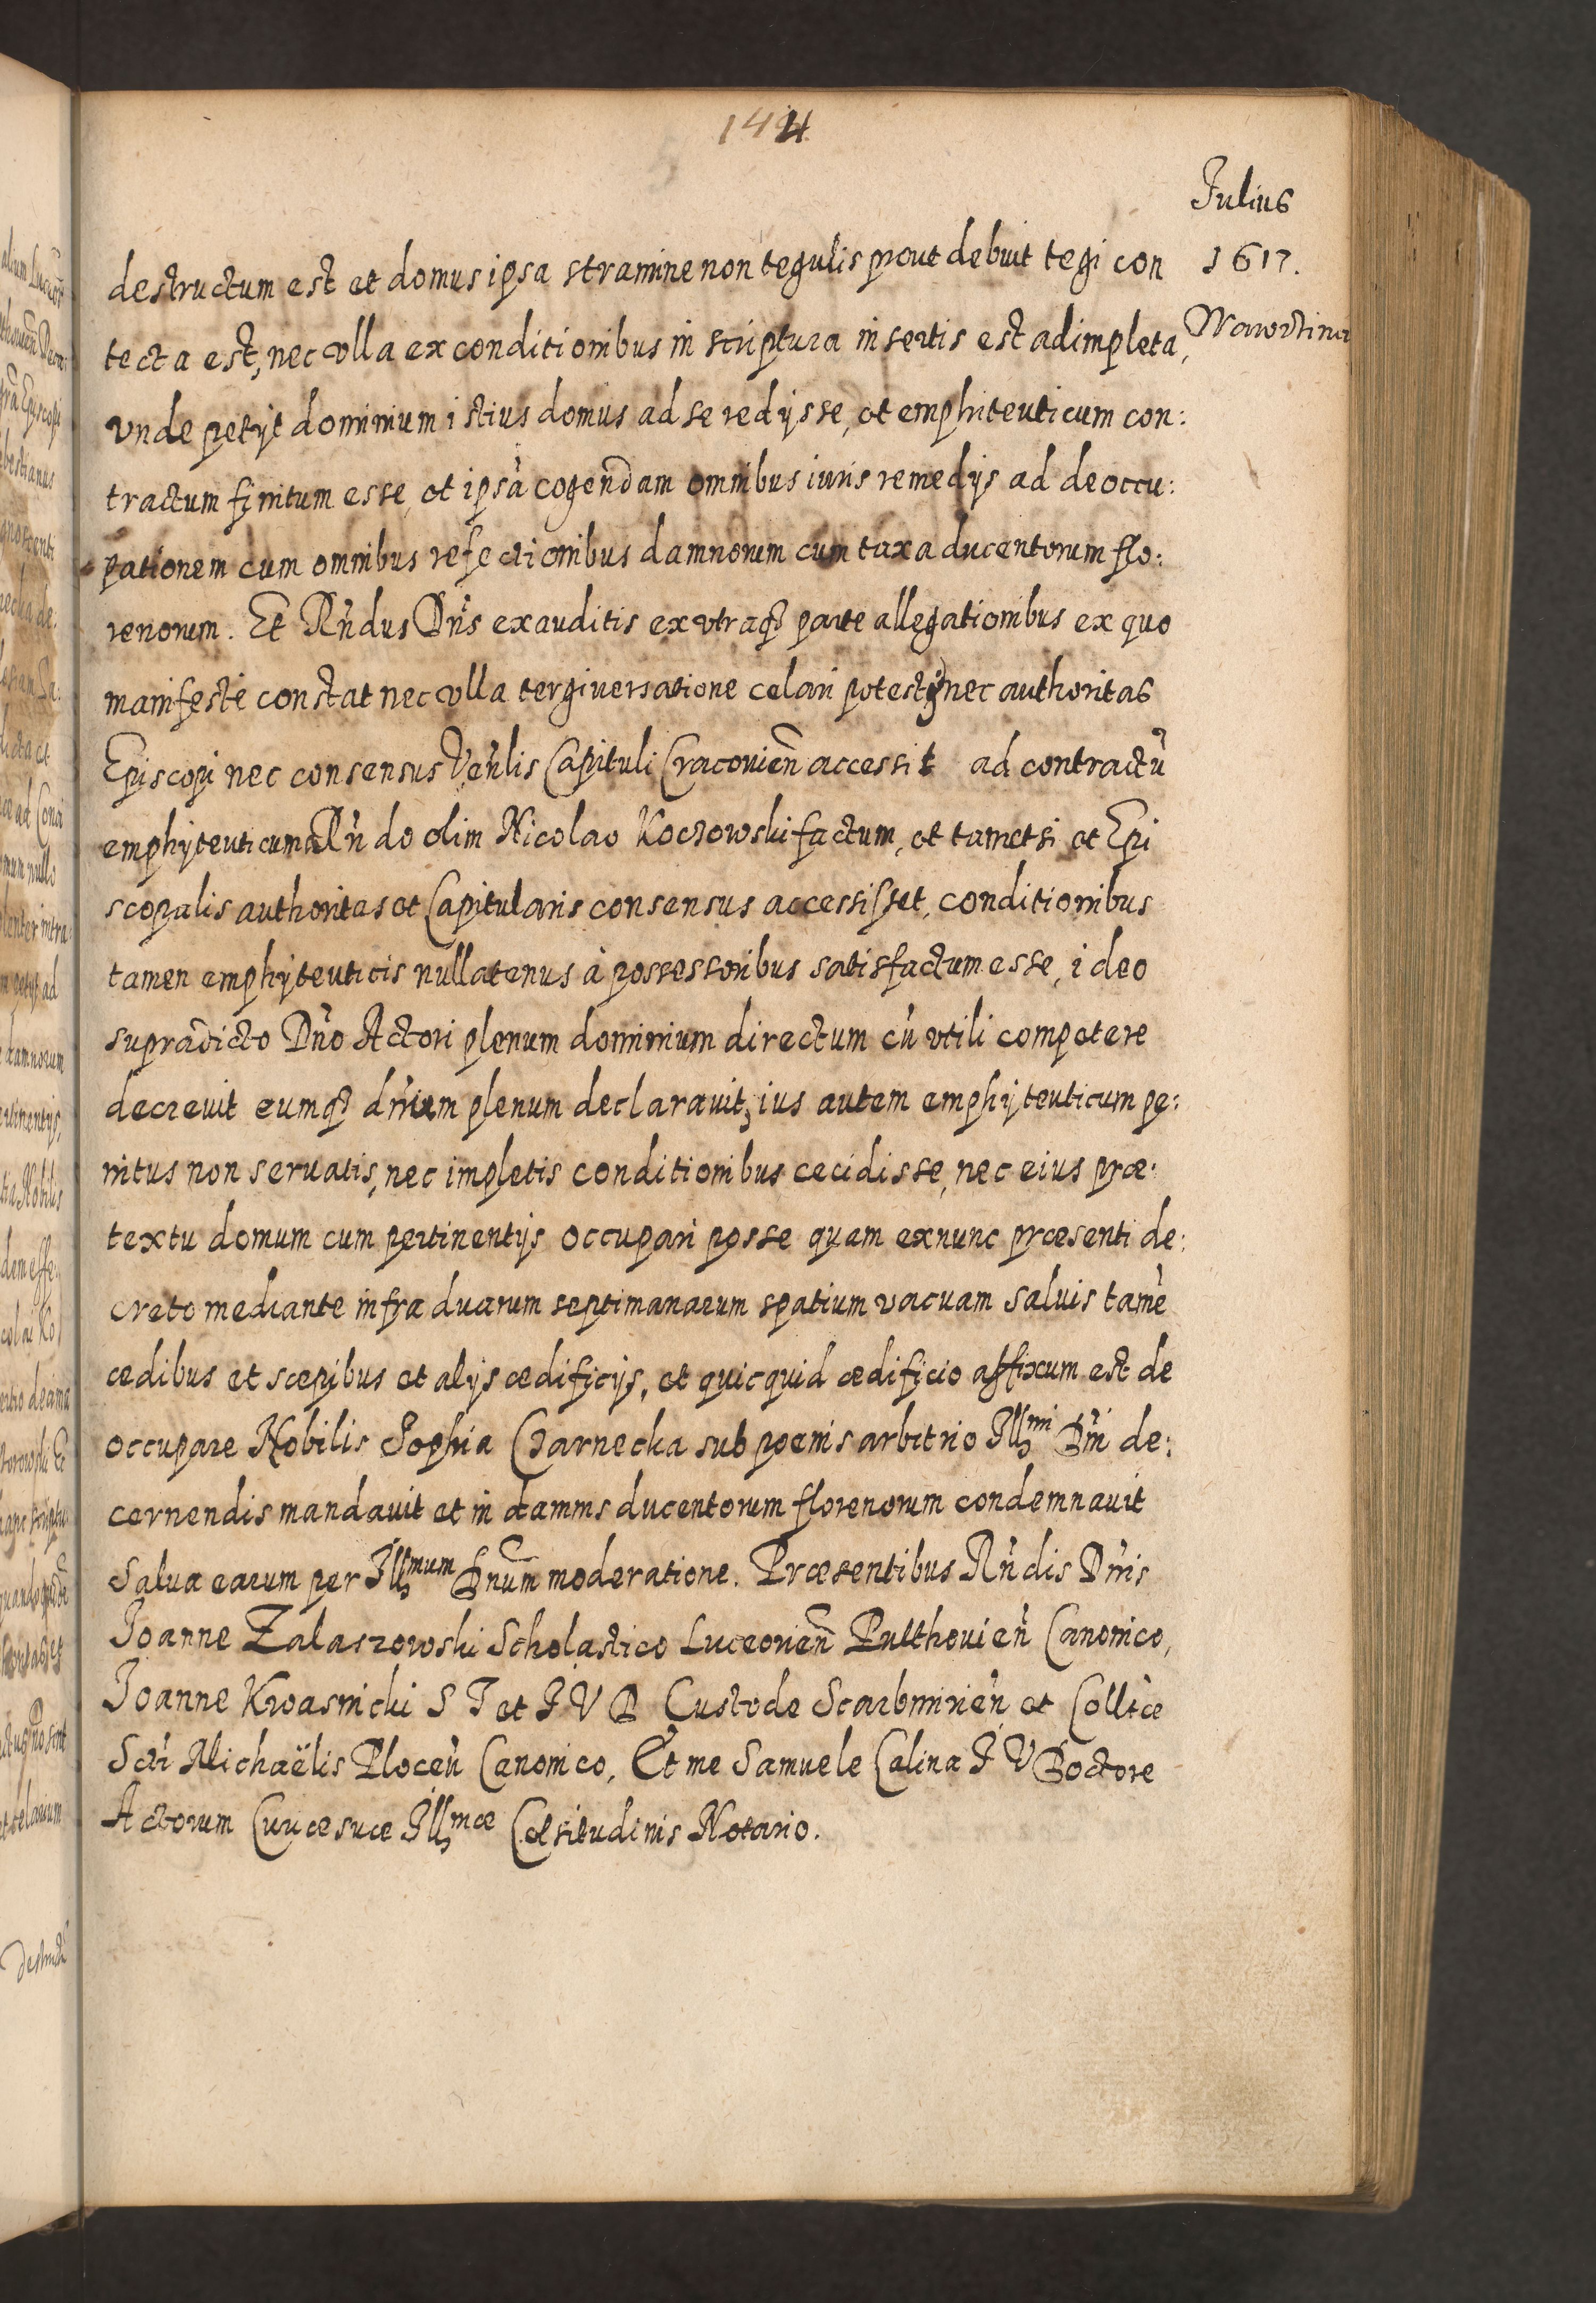 144
Julius
1617.
Wawrzina
destructum est et domus ipsa stramine non tegulis prout debuit tegi con
tecta est, nec vlla ex conditionibus in scriptura insertis est adimpleta,
vnde petijt dominium istius domus ad se redijsse, et emphiteuticum con:
tractum finitum esse, et ipsã cogendam omnibus iuris remedijs ad deoccu:
pationem cum omnibus refectionibus damnorum cum taxa ducentorum flo:
renorum. Et Rñdus Dñs exauditis ex vtraq₃ parte allegationibus ex quo
manifestè constat nec vlla tergiuersatione celari potest nec authoritas
Episcopi nec consensus Veñlis Capituli Cracouieñ accessit ad contractũ
emphyteuticum Rñdo olim Nicolao Koczowski factum, et tametsi et Epi
scopalis authoritas et Capitularis consensus accessisset, conditionibus
tamen emphyteuticis nullatenus à possessoribus satisfactum esse, ideo
supradicto Dño Actori plenum dominium directum cũ vtili competere
decreuit eumq₃ dñium plenum declarauit, ius autem emphyteuticum pe:
nitus non seruatis, nec impletis conditionibus cecidisse, nec eius præ:
textu domum cum pertinentijs occupari posse quam exnunc præsenti de:
creto mediante infra duarum septimanarum spatium vacuam saluis tamẽ
ædibus et sæpibus et alijs ædificijs, et quicquid ædificio affixum est de
occupare Nobilis Sophia Czarnecka sub poenis arbitrio Illmi Dñi de:
cernendis mandauit et in damnis ducentorum florenorum condemnauit
Salua earum per Illmum Dnum moderatione. Præsentibus Rñdis Dñis
Joanne Zalaszowski Scholastico Luceorieñ Pulthouieñ Canonico,
Joanne Kwasnicki S T et J V D Custode Scarbimirieñ et Colltæ
Scti Michaëlis Ploceñ Canonico, Et me Samuele Calina J V Doctore
Actorum Curiæ suæ Illmæ Celsitudinis Notario.